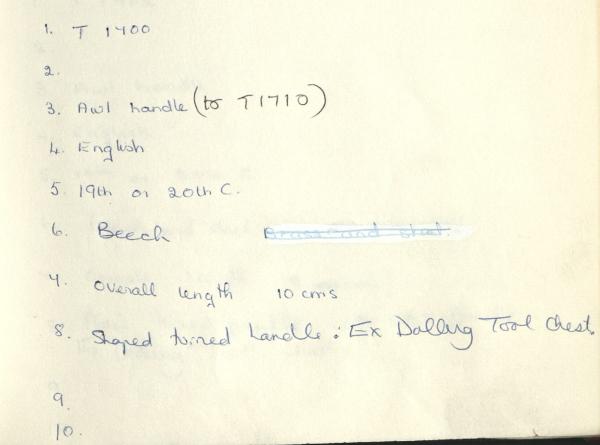 1. T 1700
2.
3. Awl handle (to T1710)
4. English
5. 19th or 20th C.
6. Beech Brass and steel.
7. Overall length 10 cms
8. Shaped turned handle : Ex Dalling Tool Chest.
9.
10.